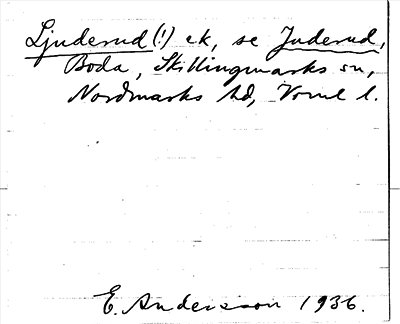 Ljuderud (!) ek, se Juderud,
Boda, Skillingmarks sn,
Nordmarks hd, Verml l.
E. Andersson 1936.